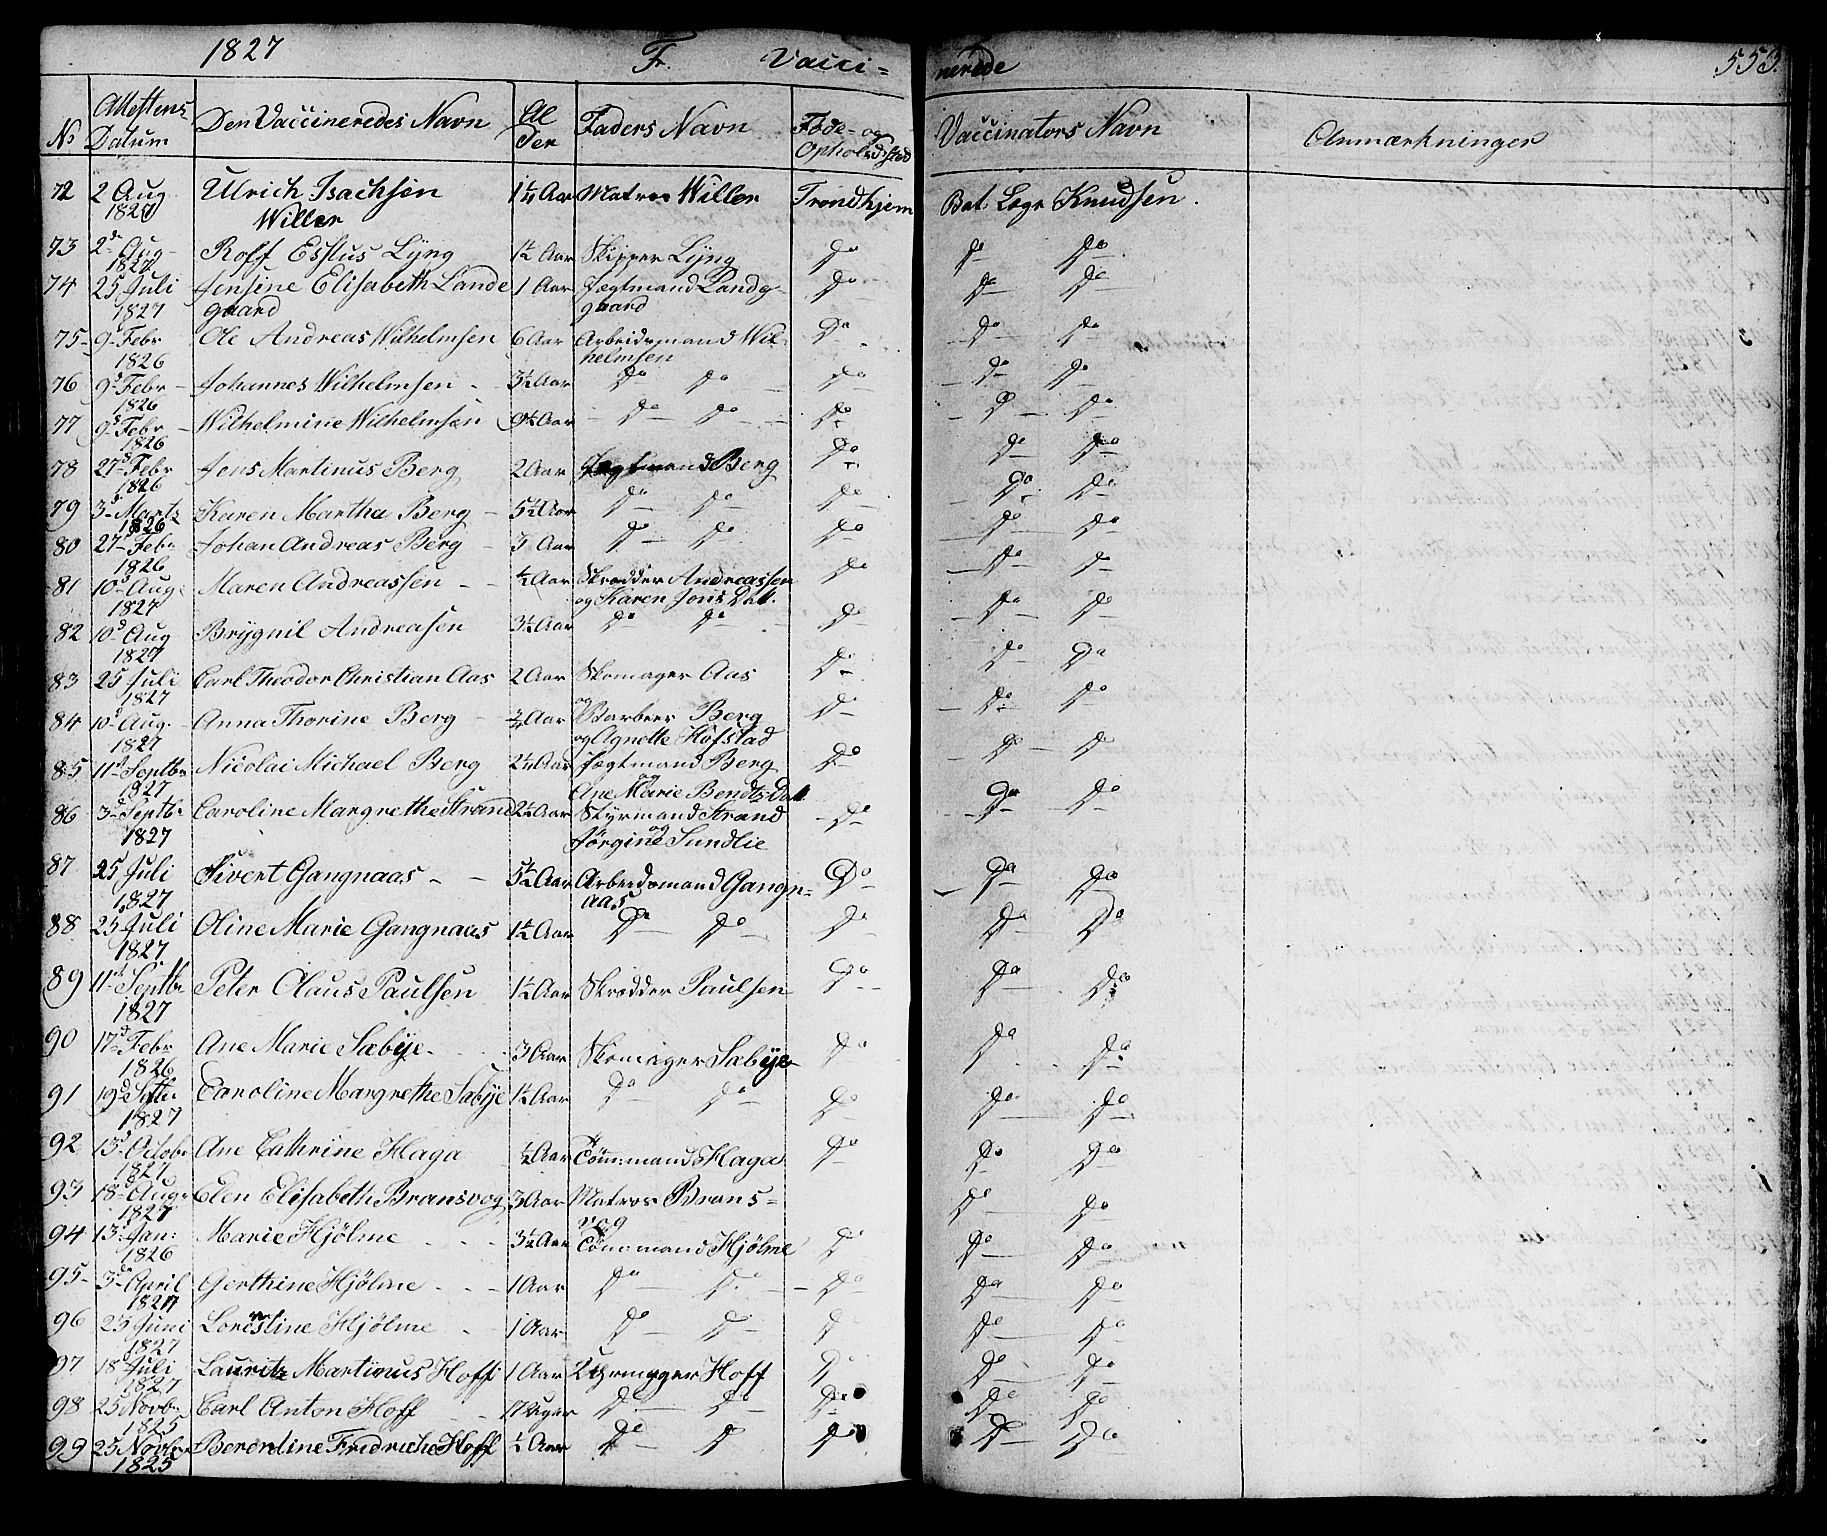 1827 Fr. Vacci=
nerede 553.
No Attestens Datum Den Vaccineredes Navn Al ter Faders Navn Føde- og Opholdssted Vaccinators Navn Anmærkninger
72 2 Aug 1827 Ulrich Isachsen Willer 1¼ Aar Matros Willer Trondhjem Bat. Læge Knudsen.
73 2d Aug 1827 Rolf Esflus Lÿng 1½ Aar Skipper Lÿng Do Do Do
74 25 Juli 1827 Jensine Elisabeth Lande gaard 1 Aar Jægtmand Landg- gaard Do Do Do
75 9d Febr 1826 Ole Andreas Wilhelmsen 6 Aar Arbeidsmand Wil- helmsen Do Do Do
76 9d Febr 1826 Johannes Wilhelmsen 3½ Aar Do Do Do Do Do
77 9d Febr 1826 Wilhelmine Wilhelmsen 9½ Aar Do Do Do Do Do
78 27d Febr 1826 Jens Martinus Berg 2 Aar Jægtmand Berg Do Do Do
79 3d Marts 1826 Karen Martha Berg 5½ Aar Do Do Do Do Do
80 27d Febr 1826 Johan Andreas Berg 3 Aar Do Do Do Do Do
81 10d Aug: 1827 Maren Andreassen ½ Aar Skrædder Andreassen og Karen Jons Dat. Do Do Do
82 10d Aug 1827 Brÿgnil Andreasen 3½ Aar Do Do Do Do Do
83 25 Juli 1827 Carl Theodor Christian Aas 2 Aar Skomager Aas Do Do Do
84 10d Aug. 1827 Anna Thorine Berg ¾ Aar Barbeer Berg og Agnette Hofstad Do Do Do
85 11d Septbr 1827 Nicolai Michael Berg 2¼ Aar Jægtmand Berg og Ane Marie Bendts Dat Do Do Do
86 3d Septbr 1827 Caroline Margrethe Strand 2½ Aar Styrmand Strand og Jørgine Sundlie Do Do Do
87 25 Juli 1827 Sivert Gangnaas 5½ Aar Arbeidsmand Gangn= aas Do Do Do
88 25 Juli 1827 Oline Marie Gangnaas 1½ Aar Do Do Do Do Do
89 11d Septbr 1827 Peter Claus Paulsen 1½ Aar Skrædder Paulsen Do Do Do
90 17d Febr 1826 Ane Marie Sæbÿe 3 Aar Skomager Sæbÿe Do Do Do
91 19d Septbr 1827 Caroline Margrethe Sæbÿe 1½ Aar Do Do Do Do Do
92 13d Octobr 1827 Ane Cathrine Haga ½ Aar Tømmermand Haga Do Do Do
93 18d Aug: 1827 Elen Elisabeth Bransvog 3 Aar Matros Brans= vog Do Do
94 13d Jan: 1826 Marie Hjølme 3½ Aar Tømmermand Hjølme Do Do Do
95 3d April 1827 Gerthine Hjølme 1 Aar Do Do Do Do Do
96 25 Juni 1827 Lorentine Hjølme 1 Aar Do Do Do Do Do
97 18d Juli 1827 Lauritz Martinus Hoff 1 Aar Uhrmager Hoff Do Do Do
98 25 Novbr 1825 Carl Anton Hoff 17 Uger Do Do Do Do Do
99 25 Novbr 1825 Berentine Fredriche Hoff ½ Aar Do Do Do Do Do